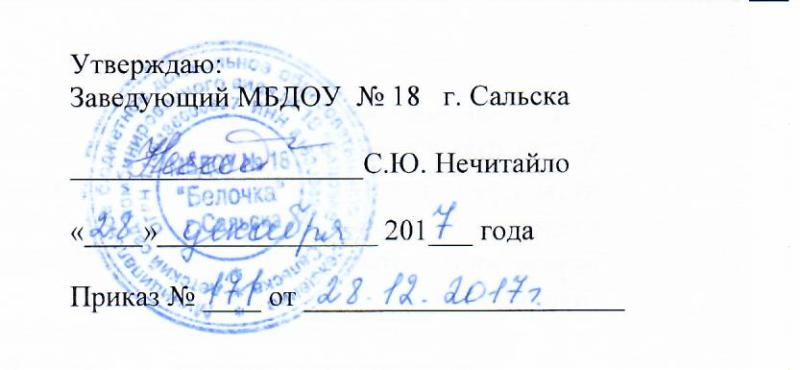 Утверждаю:
Заведующий МБДОУ № 18 г. Сальска
С.Ю. Нечитайло
«28» декабря 2017 года
Приказ № 171 от 28.12.2017г.
№ 18
"Белочка"
г. Сальска